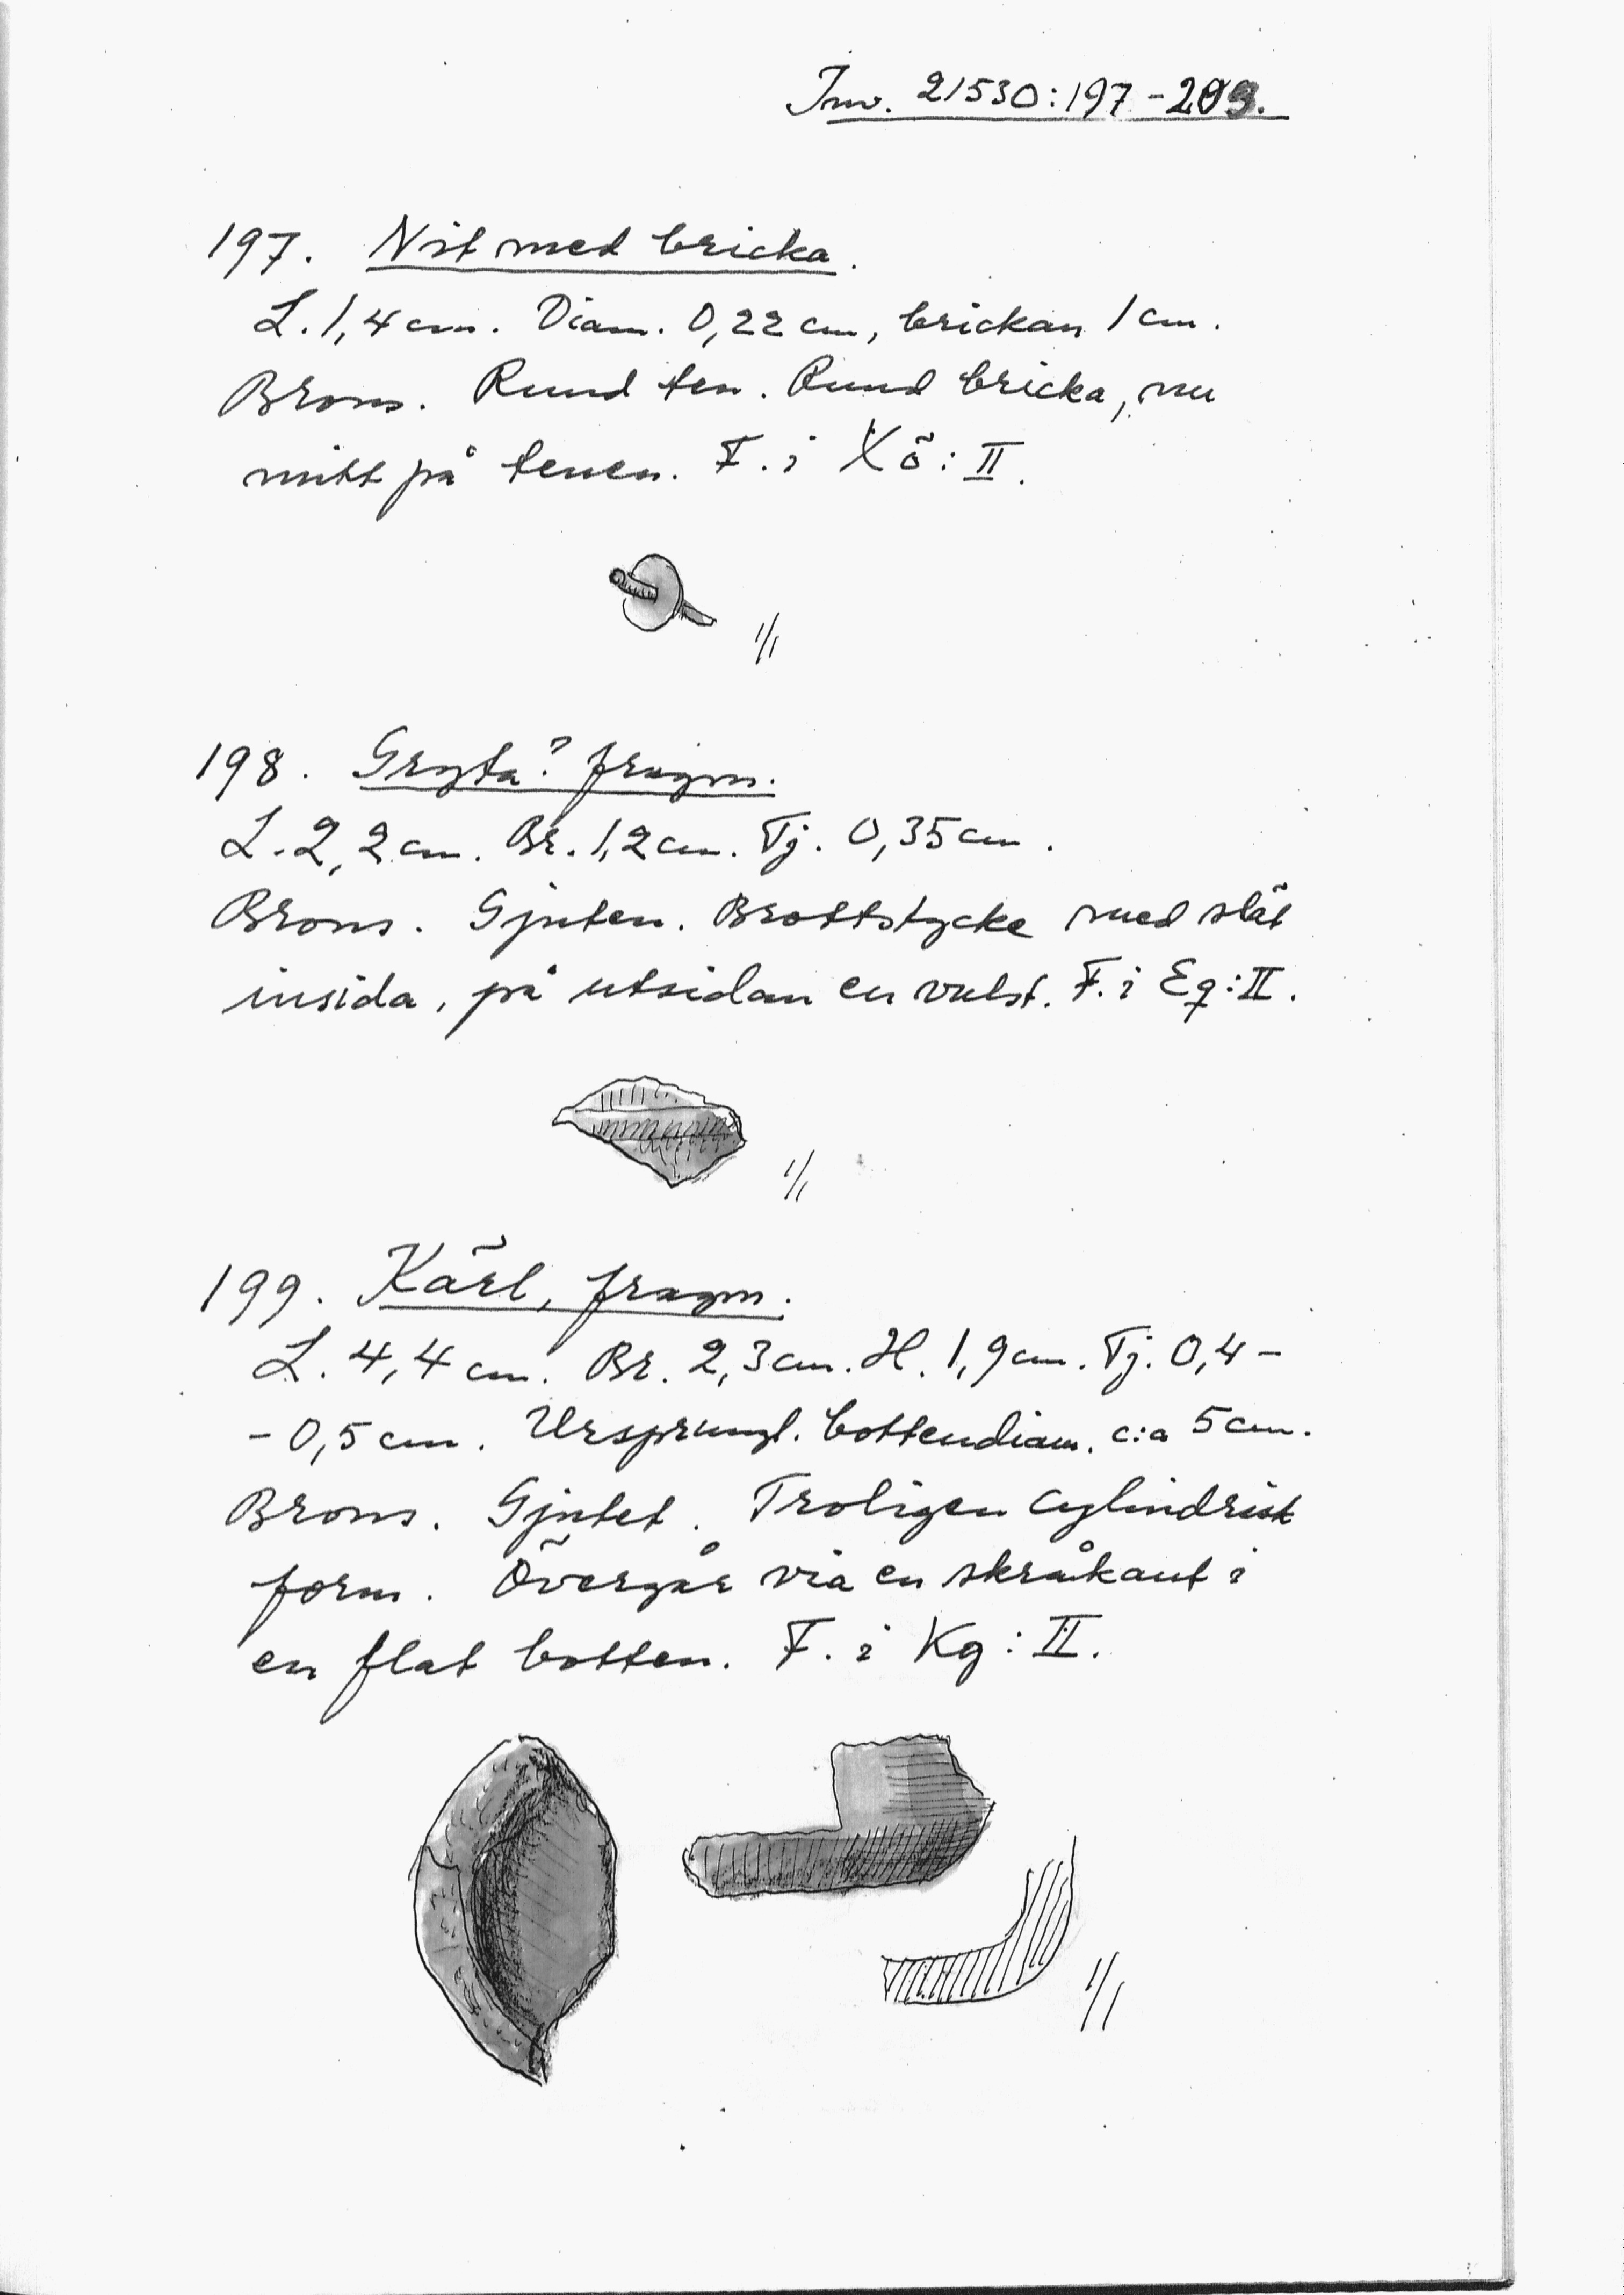 Inv. 21530:197-203.
197. Nit med bricka.
L. 1,4 cm. Diam. 0,22 cm, brickan 1 cm.
Brons. Rund ten. Rund bricka, nu
mitt på tenen. F. i Xö:II.
1/1
198. Gryta? fragm.
L. 2,2 cm. Br. 1,2 cm. Tj. 0,35 cm.
Brons. Gjuten. Brottstycke med slät
insida, på utsidan en vulst. F. i Eq:II.
1/1
199. Kärl, fragm.
L. 4,4 cm. Br. 2,3 cm. H. 1,9 cm. Tj. 0,4-
-0,5 cm. Ursprungl. bottendiam. c:a 5 cm.
Brons. Gjutet. Troligen cylindrisk
form. Övergår via en skråkant i
en flat botten. F. i Kg:II.
1/1